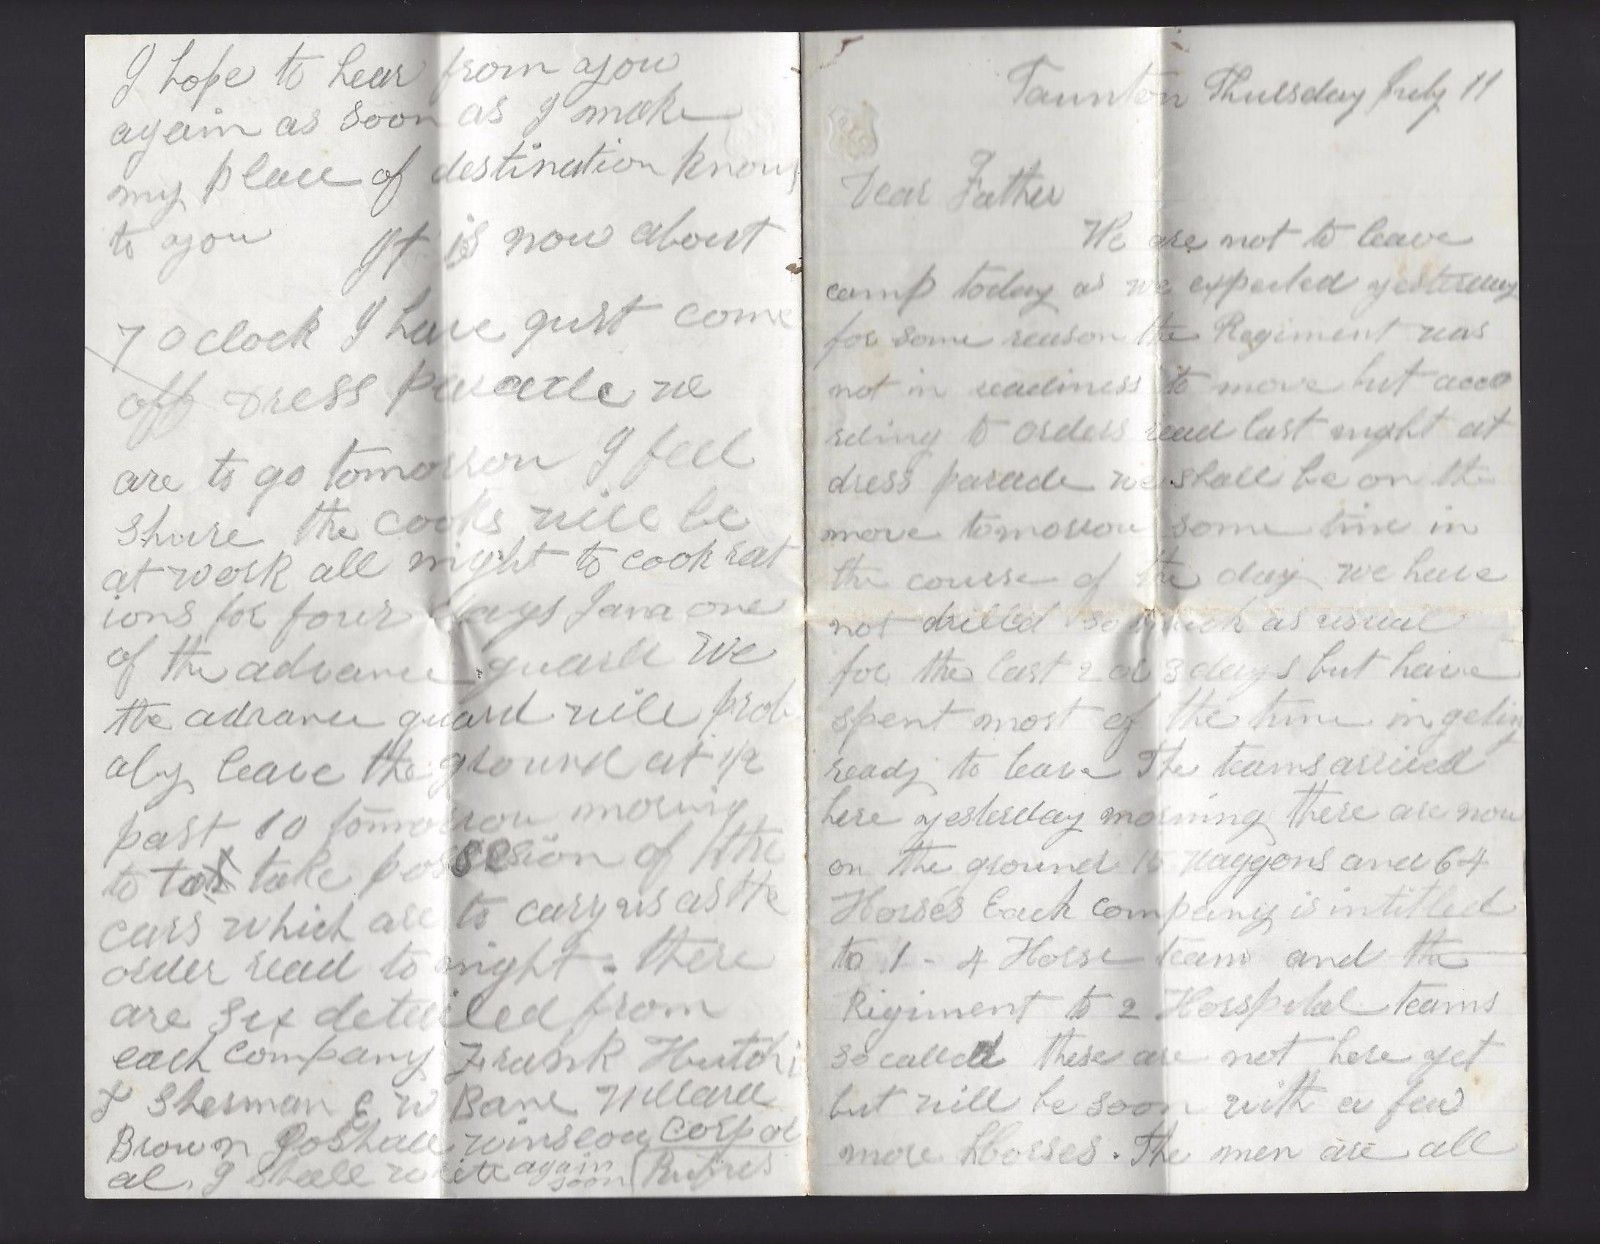 Taunton Thursday July 11
Dear Father
We are not to leave
camp today as we expected yesterday
for some reason the Regiment was
not in readiness to move but acco
rding to orders read last night at
dress parade we shall be on the
move tomorrow some time in
the course of the day we have
not drilled so much as usual
for the last 2 or 3 days but have
spent most of the time in geting
ready to leave The teams arrived
here yesterday morning there are now
on the ground 15 Waggons and 64
Horses Each Company is intitled
to 1 - 4 Horse team and the
Rigiment to 2 Horspital teams
so called these are not here yet
but will be soon with a few
more Horses. The men are all
I hope to hear from you
again as soon as I make
my place of destination known
to you It is now about
7 O clock I have just come
off Dress parade we
are to go tomorrow I feel
shure the cooks will be
at work all night to cook rat
ions for four days I am one
of the advance guard We
the advance guard will prob
aly leave the ground at 1/2
past 10 tomorrow morning
to take possesion of the
cars which are to cary us as the
order read to night. there
are six detailed from
each Company Frank Hutchi
Sherman E W Bane Willard
Brown Winslow Corpor
al. I shall write again soon Rufus